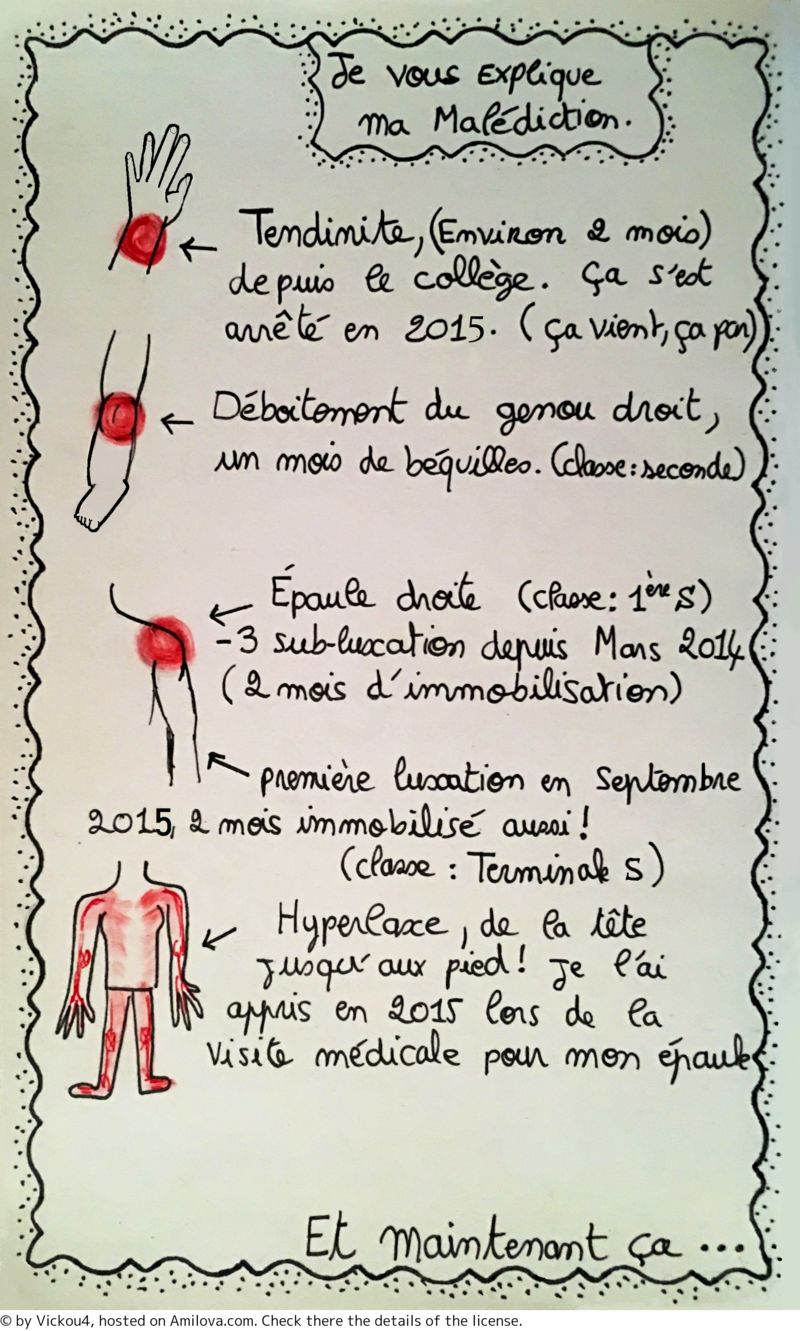 Je vous explique
ma Malédiction.
Tendinite, (Environ 2 mois)
depuis le collège. Ça s'est
arrêté en 2015. (ça vient, ça par)
Déboitement du genou droit,
un mois de béquilles. (classe : seconde)
Épaule droite (classe : 1ère S)
-3 sub-luxation depuis Mars 2014
(2 mois d'immobilisation)
première luxation en Septembre
2015, 2 mois immobilisé aussi !
(classe : Terminale S)
Hyperlaxe, de la tête
jusqu'aux pied ! Je l'ai
appris en 2015 lors de la
visite médicale pour mon épaule
Et maintenant ça ...
© by Vickou4, hosted on Amilova.com. Check there the details of the license.